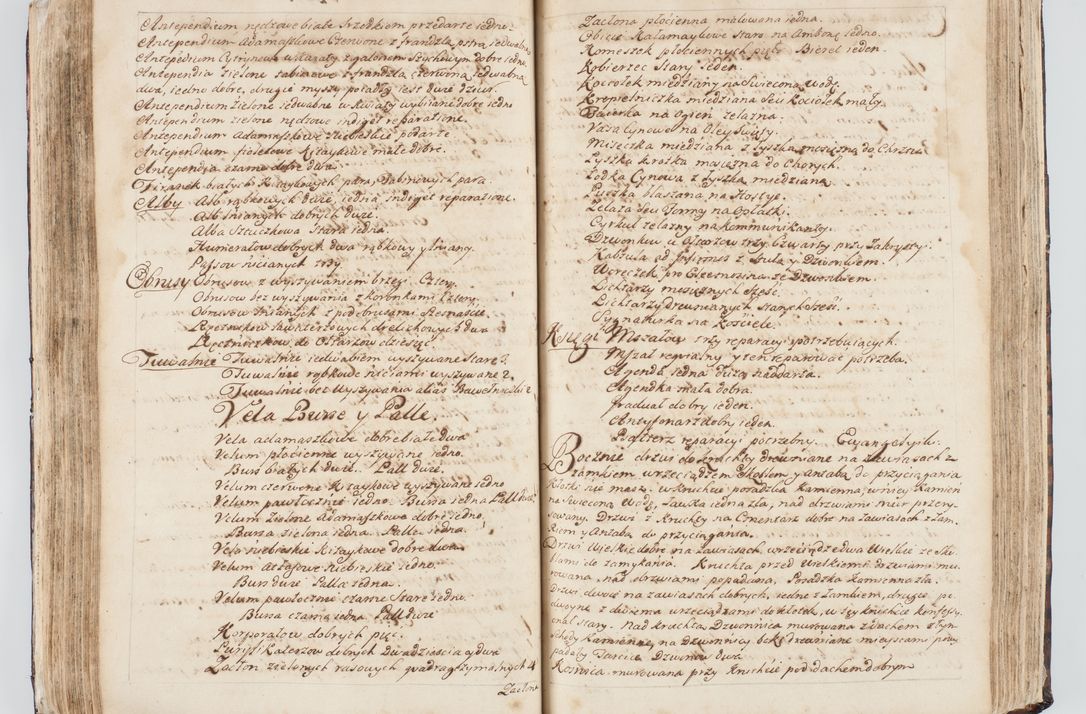 Antependium nędzowe białe srzodkiem przedarte iedno.
Antependium Adamaszkowe Czerwone z frandzlą pstrą iedwabną
Antepedium Cytrynowe w kwiaty z galonem szychowym dobre iedno
Antependia zielone tabinowe z frandzlą czerwoną iedwabną
dwa, iedno dobre, drugie myszy popadły iest dwie dziur.
Antependium zielone iedwabne w kwiaty wybiiane dobre iedno
Antependium zielone nędzowe indiget reparatione.
Antependium adamaszkowe niebieskie podarte
Antependium fioletowe Kitaykowe małe dobre.
Antependia czarne dobre dwa
Firanek białych Kitaykowych para, Tabinowych para.
Alby Alb rąbkowych dwie, iedna indiget reparatione.
Alb lnianych dobrych dwie.
Alba Sztuczkowa Stara iedna.
Humerałow dobrych dwa rąbkowy y lniany.
Passow nicianych trzy
Obrusy Obrusow z wyszywaniem brzegi Cztery.
Obrusow bez wyszywania z koronkami Cztery.
Obrusow lnianych z podobrusami szesnaście
Ręcznikow kwiksztowych drelichowych dwa
Ręczniczkow do Ołtarzow dziesięć
Tuwalnie Tuwalnie iedwabiem wyszywane Stare 3.
Tuwalnie rąbkowe niciami wyszywane 2.
Tuwalnie bez Wyszywania alias Bawełniczki 2
Vela Bursę y Pallę.
Vela adamaszkowe dobre białe dwa
Velum płocienne wyszywane iedno.
Burs białych dwie. Pall dwie.
Velum czerwone Kitaykowe wyszywane iedno
Velum pawłocznie iedno. Bursa iedna Pall dwie
Velum Zielone Adamaszkowe dobre iedno.
Bursa zielona iedna. Palla iedna.
Vela niebieskie Kitaykowe dobre dwa.
Velum Atłasowe niebieskie iedno.
Burs dwie Palla iedna.
Velum pawłocznie czarne Stare iedno.
Bursa czarna iedna Pall dwie
Korporałow dobrych pięć.
Puryfikaterzow dobrych Dwadzieścia y dwa
Zacłon zielonych rasowych
Zacłona
Zacłona płocienna malowana iedna.
Obicie Kałamaykowe Stare na Ambonę iedno.
Komeszek płociennych pięć Biret ieden.
Kobierzec Stary ieden.
Kociołek miedziany na Swięconą wodę.
Kropielniczka miedziana seu Kociołek mały.
Faierka na Ogień żelazna.
Vaza Cynowe na Oley Swięty.
Miseczka miedziana z łyszką mosiężną do Chrztu
Łyszka krotka mosiężna do Chorych.
Łodka Cynowa z Łyszką miedzianą
Puszka blaszana na Hostye.
Żelaza seu Formy na Opłatki.
Cyrkuł żelazny na Kommunikanty.
Dzwonkow u Ołtarzow trzy, Czwarty przy Zakrystyi.
Kapsuła ad Infirmos z bulą y Dzwonkiem.
Woreczek pro Eleemosina ze Dzwonkiem.
Lichtarzy mosiężnych sześć.
Lichtarzy drewnianych starych ośm.
Sygnaturka na Kościele.
Księgi Mszałow trzy reparacyi potrzebuiących.
Mszał requialny y ten reparować potrzeba.
Agenda iedna druga naddarta.
Agendka mała dobra.
Graduał dobry ieden.
Antyfonarz dobry ieden.
Psałterz reparacyi potrzebny.
Bocznie drzwi do Kruchty drewniane na zawiasach z
zamkiem wrzeciądzem Skoblem y antabą do przyciągania
Kłotki nie masz. w Kruchcie poradłka Kamienna, w niey Kamień
na Swięconą Wodę, Ławka iedna zła, nad drzwiami mur przery-
sowany. Drzwi z Kruchty na Cmentarz dobre na zawiasach z Zam-
kiem y Antabą do przyciągania.
Drzwi Wielkie dobre na zawiasach wrzeciądze dwa Wielkie ze Sko-
blami do zamykania. Kruchta przed Wielkiemi drzwiami mu-
rowana, nad drzwiami popadana, Posadzka Kamienna zła.
Drzwi dwoie na zawiasach dobrych, iedne z Zamkiem, drugie po-
dwoyne z dwiema wrzeciądzami do kłotek, w tey kruchcie konfessy-
onał stary. Nad kruchtą Dzwonnica murowana z dachem złym
schody Kamienne, na Dzwonnicy belki drewniane mieyscami po-
padały Tarcice Dzwonow dwa.
Kośnica murowana przy Kruchcie pod dachem dobrym